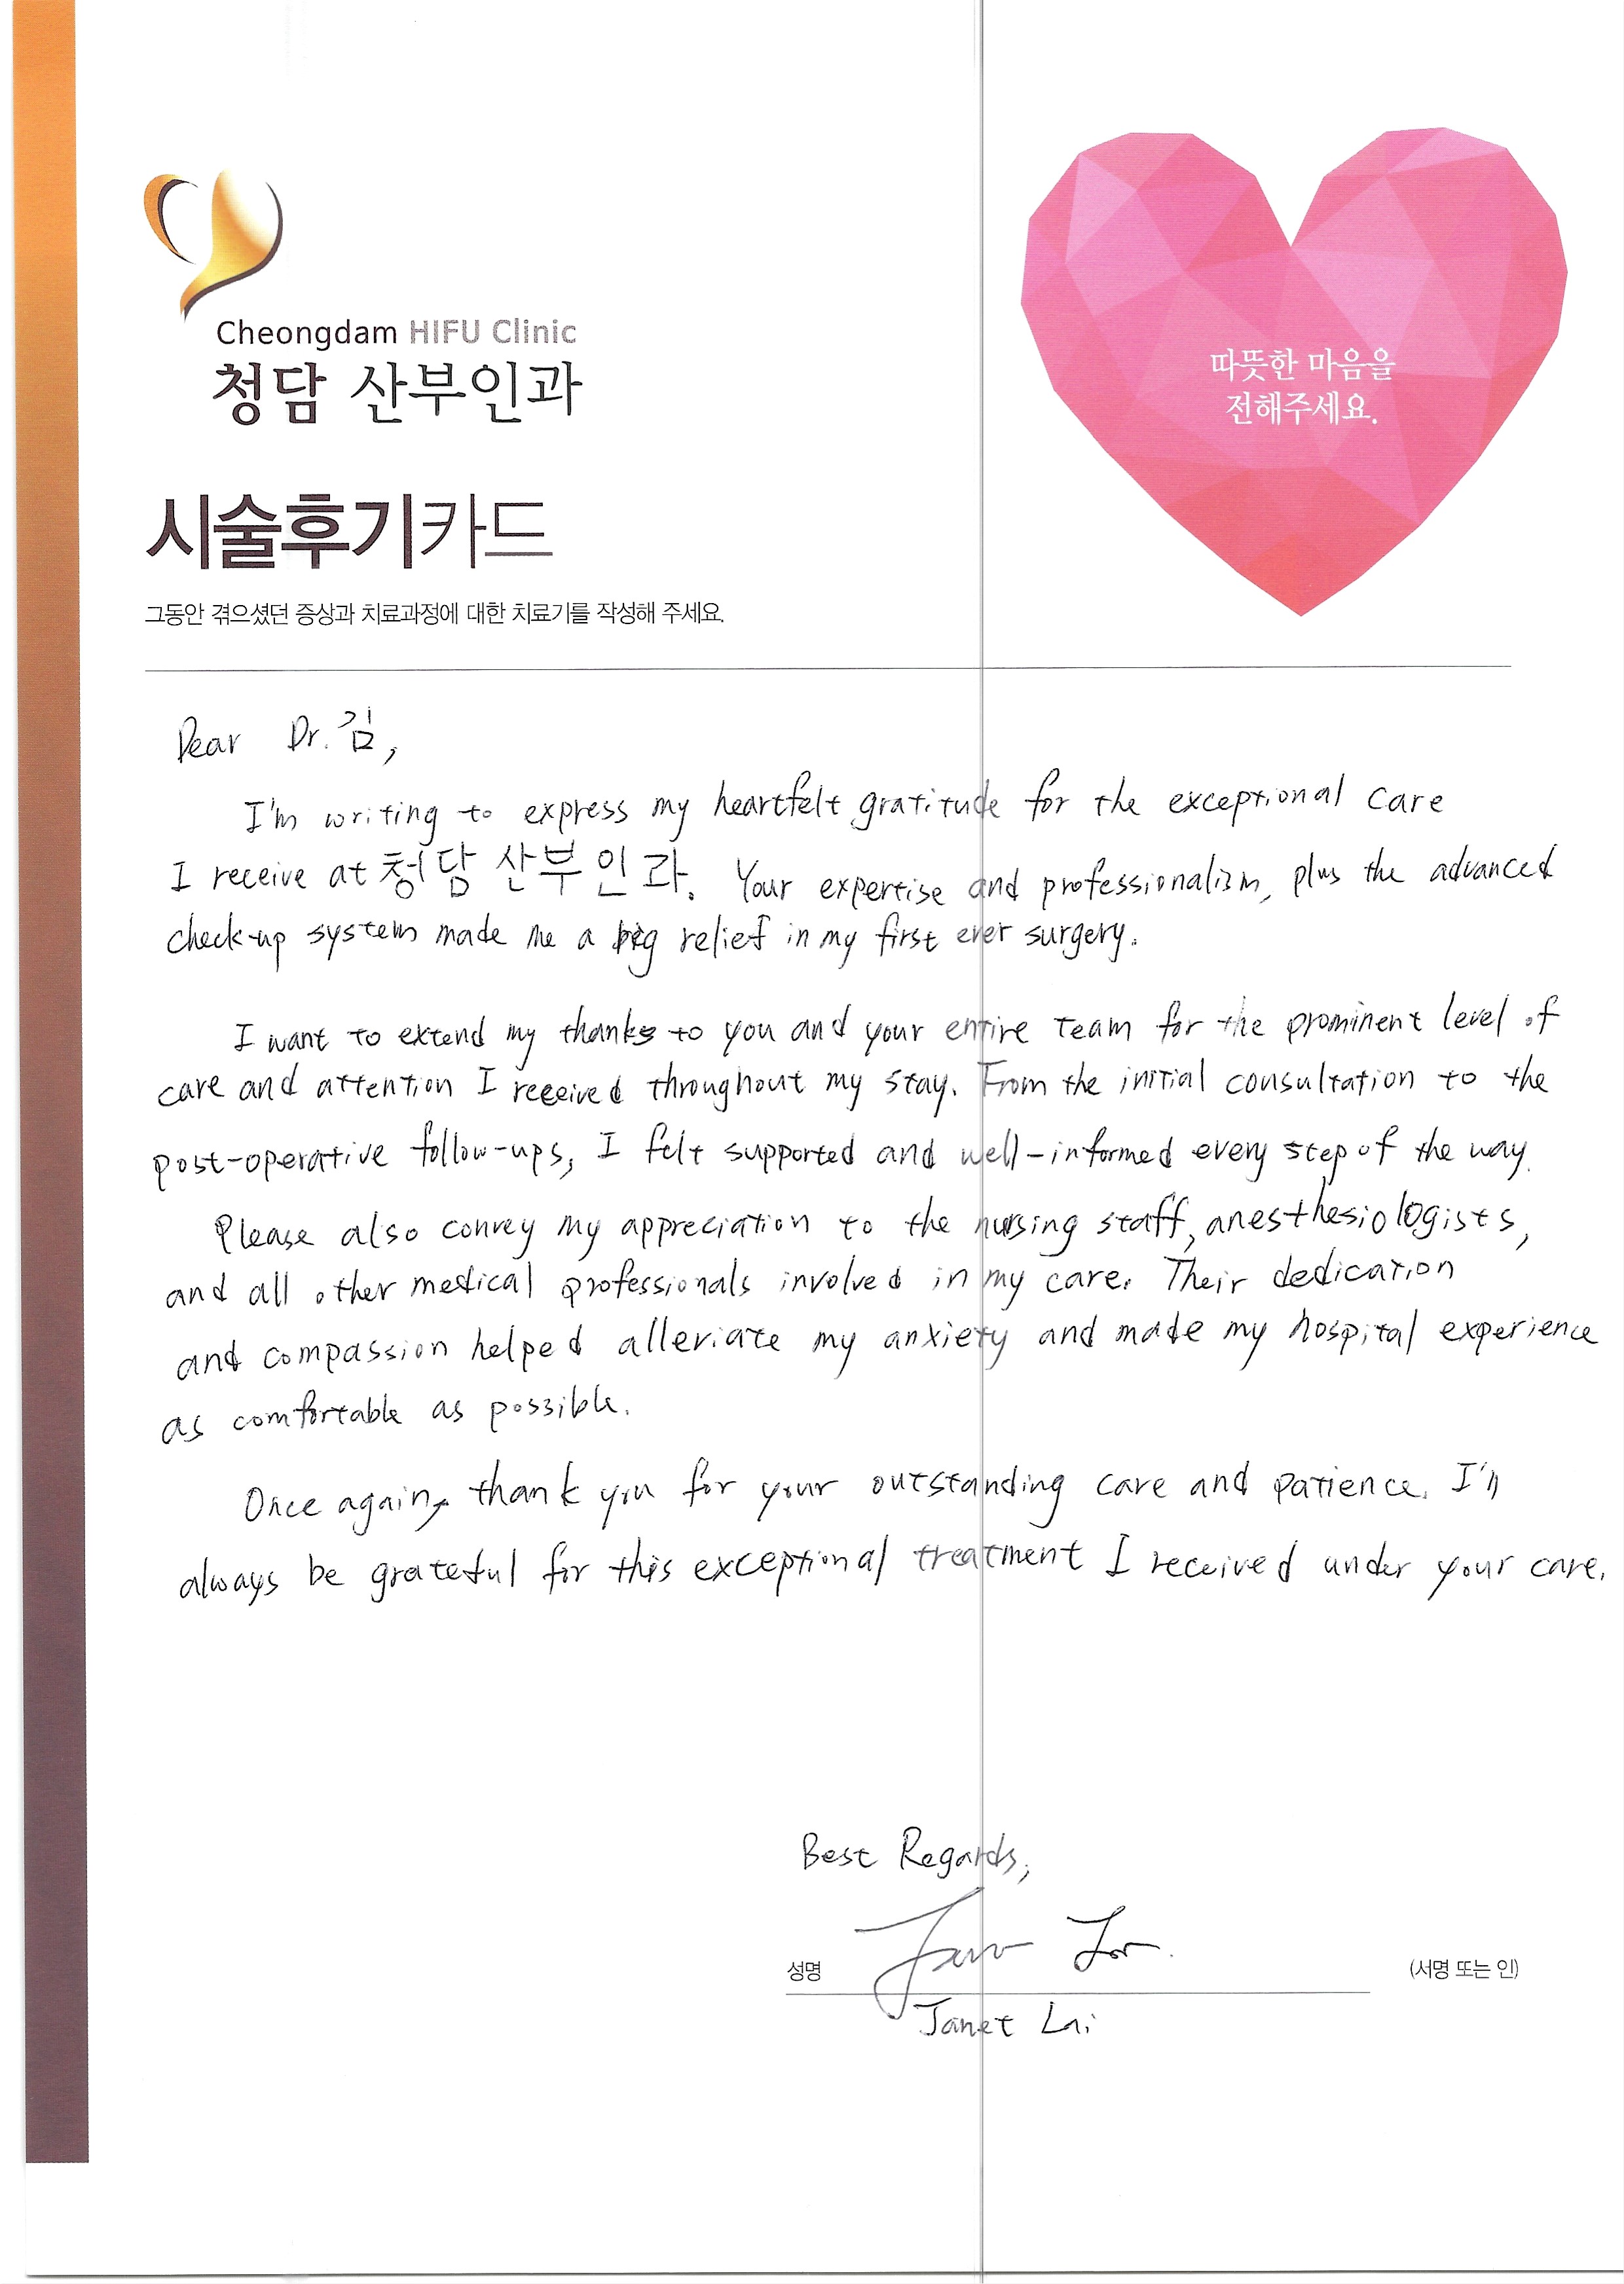 Cheongdam HIFU Clinic
청담 산부인과
따뜻한 마음을
전해주세요.
시술후기카드
그동안 겪으셨던 증상과 치료과정에 대한 치료기를 작성해 주세요.
Dear Dr. 김,
I'm writing to express my heartfelt gratitude for the exceptional care
I receive at 청담 산부인과. Your expertise and professionalism, plus the advanced
check-up system made me a big relief in my first ever surgery.
I want to extend my thanks to you and your entire team for the prominent level of
care and attention I received throughout my stay. From the initial consultation to the
post-operative follow-ups, I felt supported and well-informed every step of the way.
Please also convey my appreciation to the nursing staff, anesthesiologists,
and all other medical professionals involved in my care. Their dedication
and compassion helped alleviate my anxiety and made my hospital experience
as comfortable as possible.
Once again, thank you for your outstanding care and patience. I'll
always be grateful for this exceptional treatment I received under your care.
Best Regards,
성명 (서명 또는 인)
Janet Lai